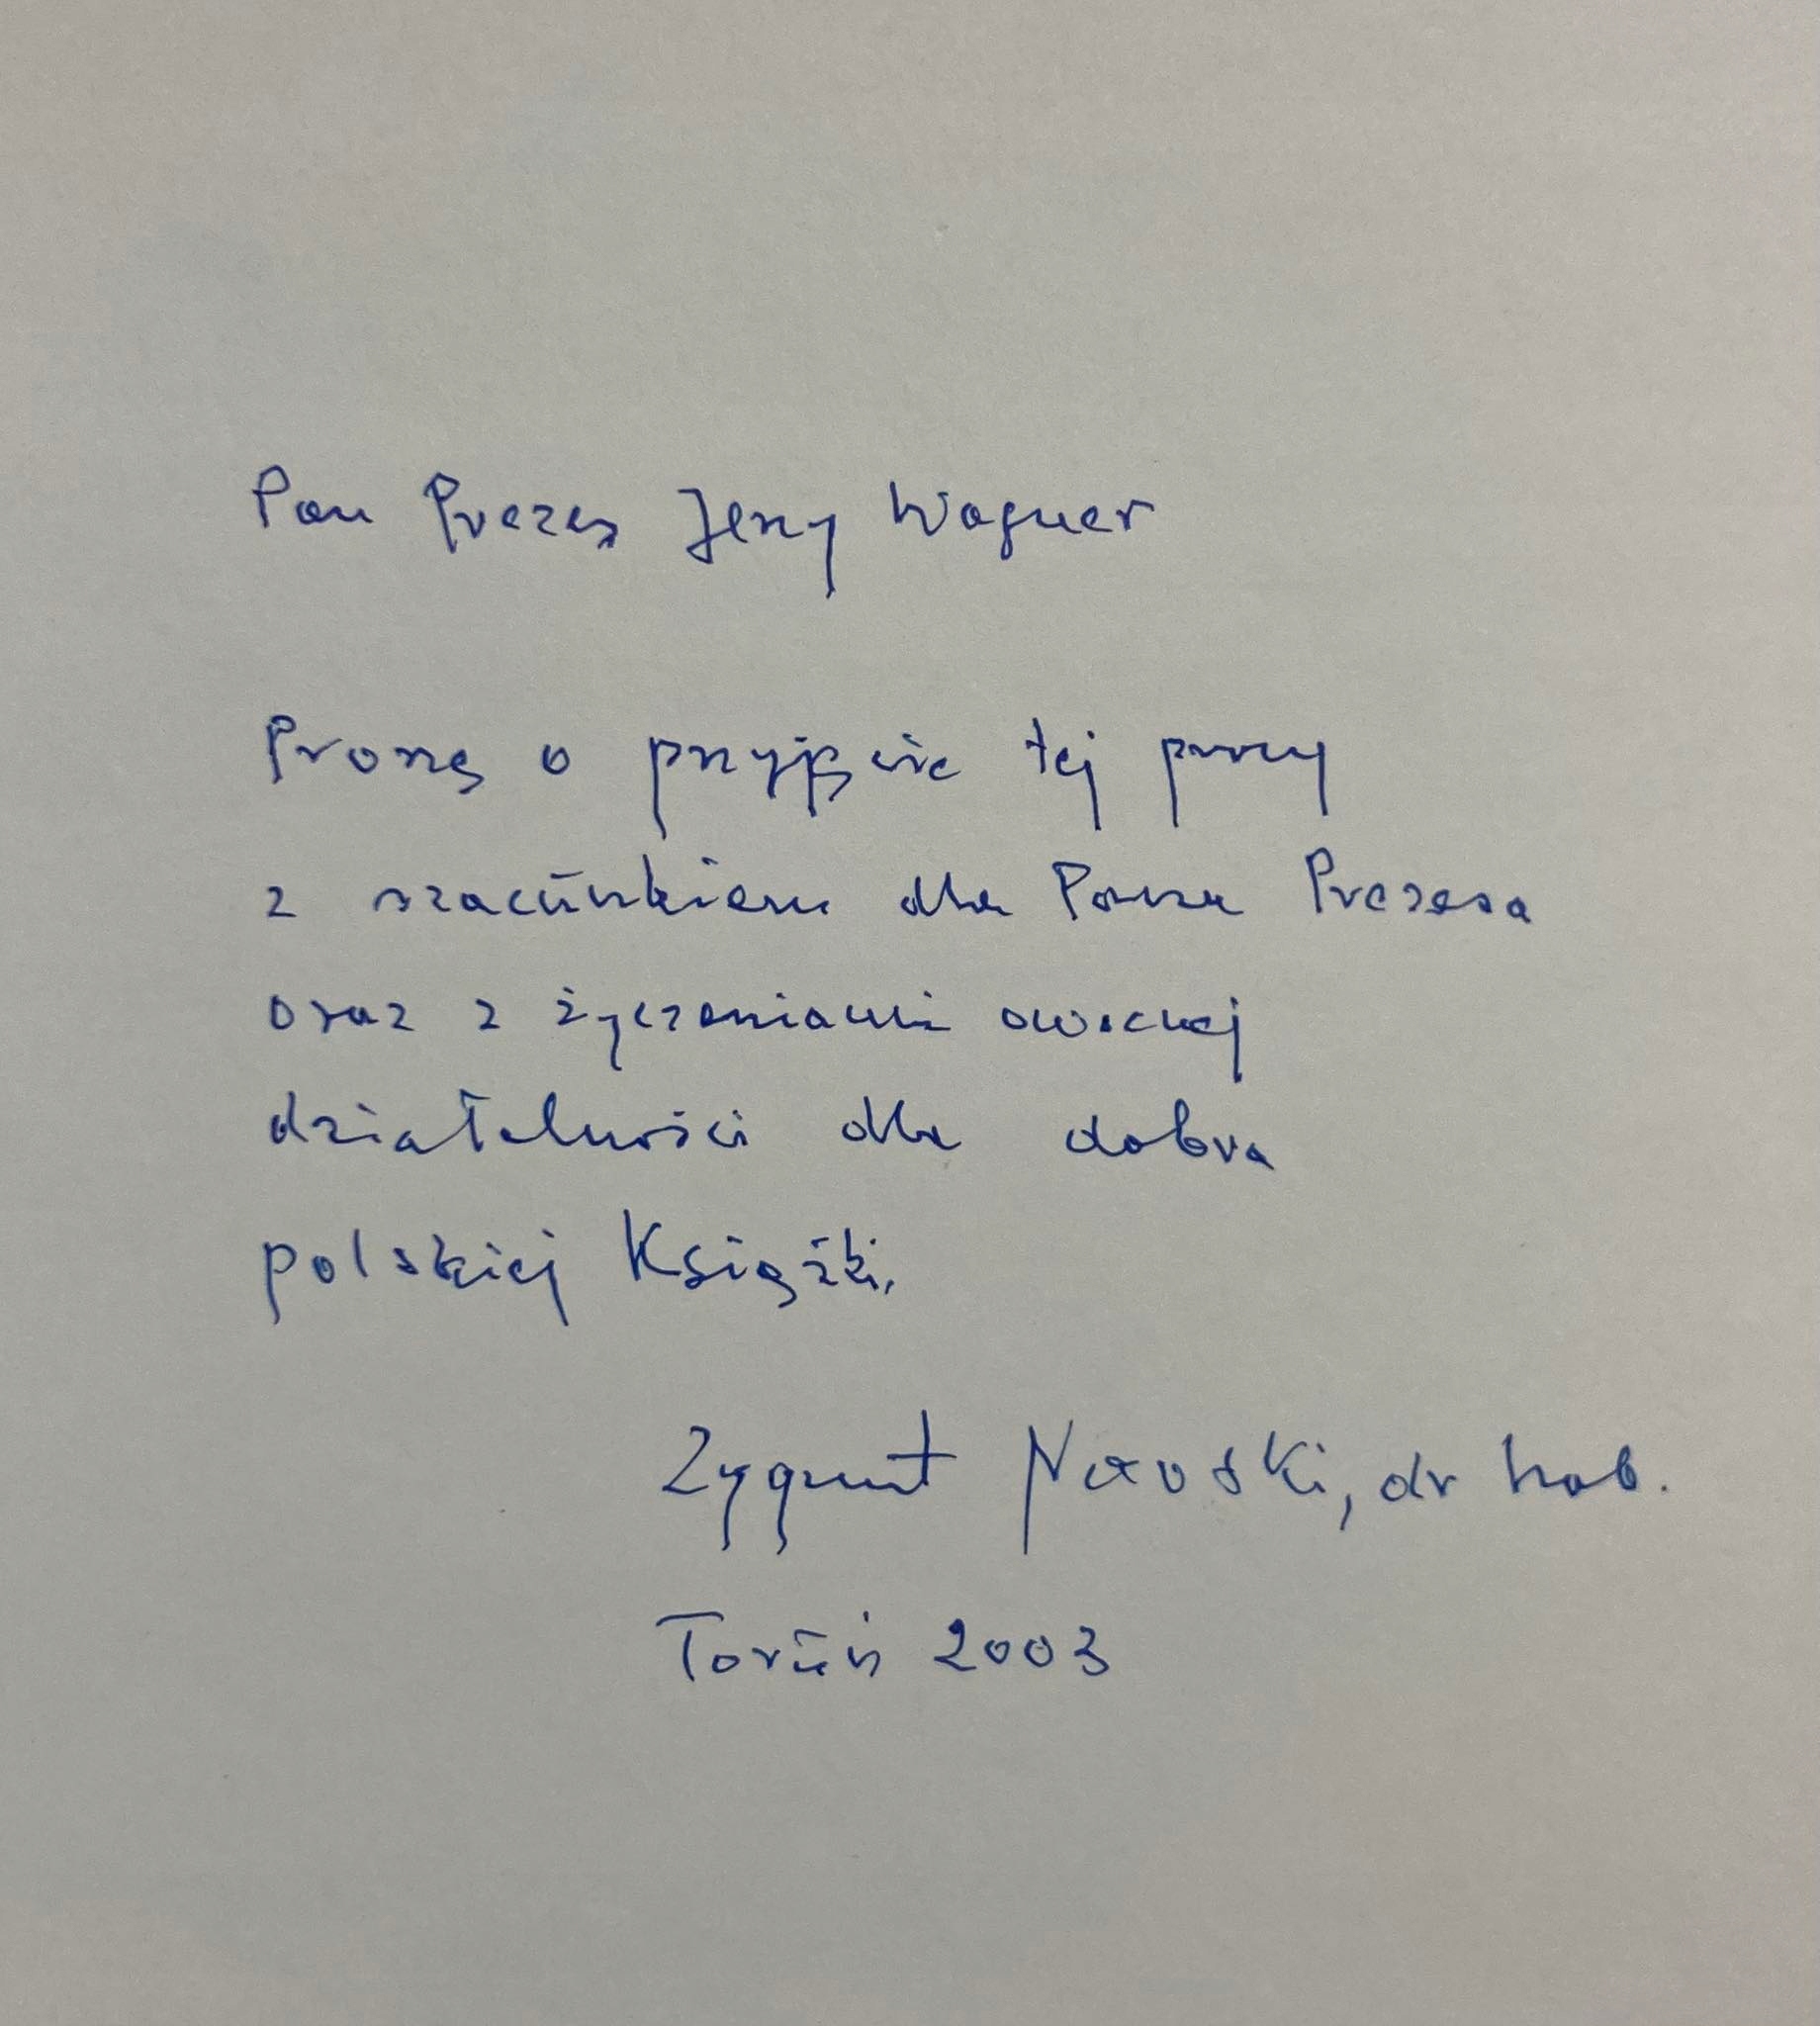 Pan Prezes Jerzy Wagner
Proszę o przyjęcie tej pracy
z szacunkiem dla Pana Prezesa
oraz z życzeniami owocnej
działalności dla dobra
polskiej Książki.
Zygmunt Naroski, dr hab.
Toruń 2003